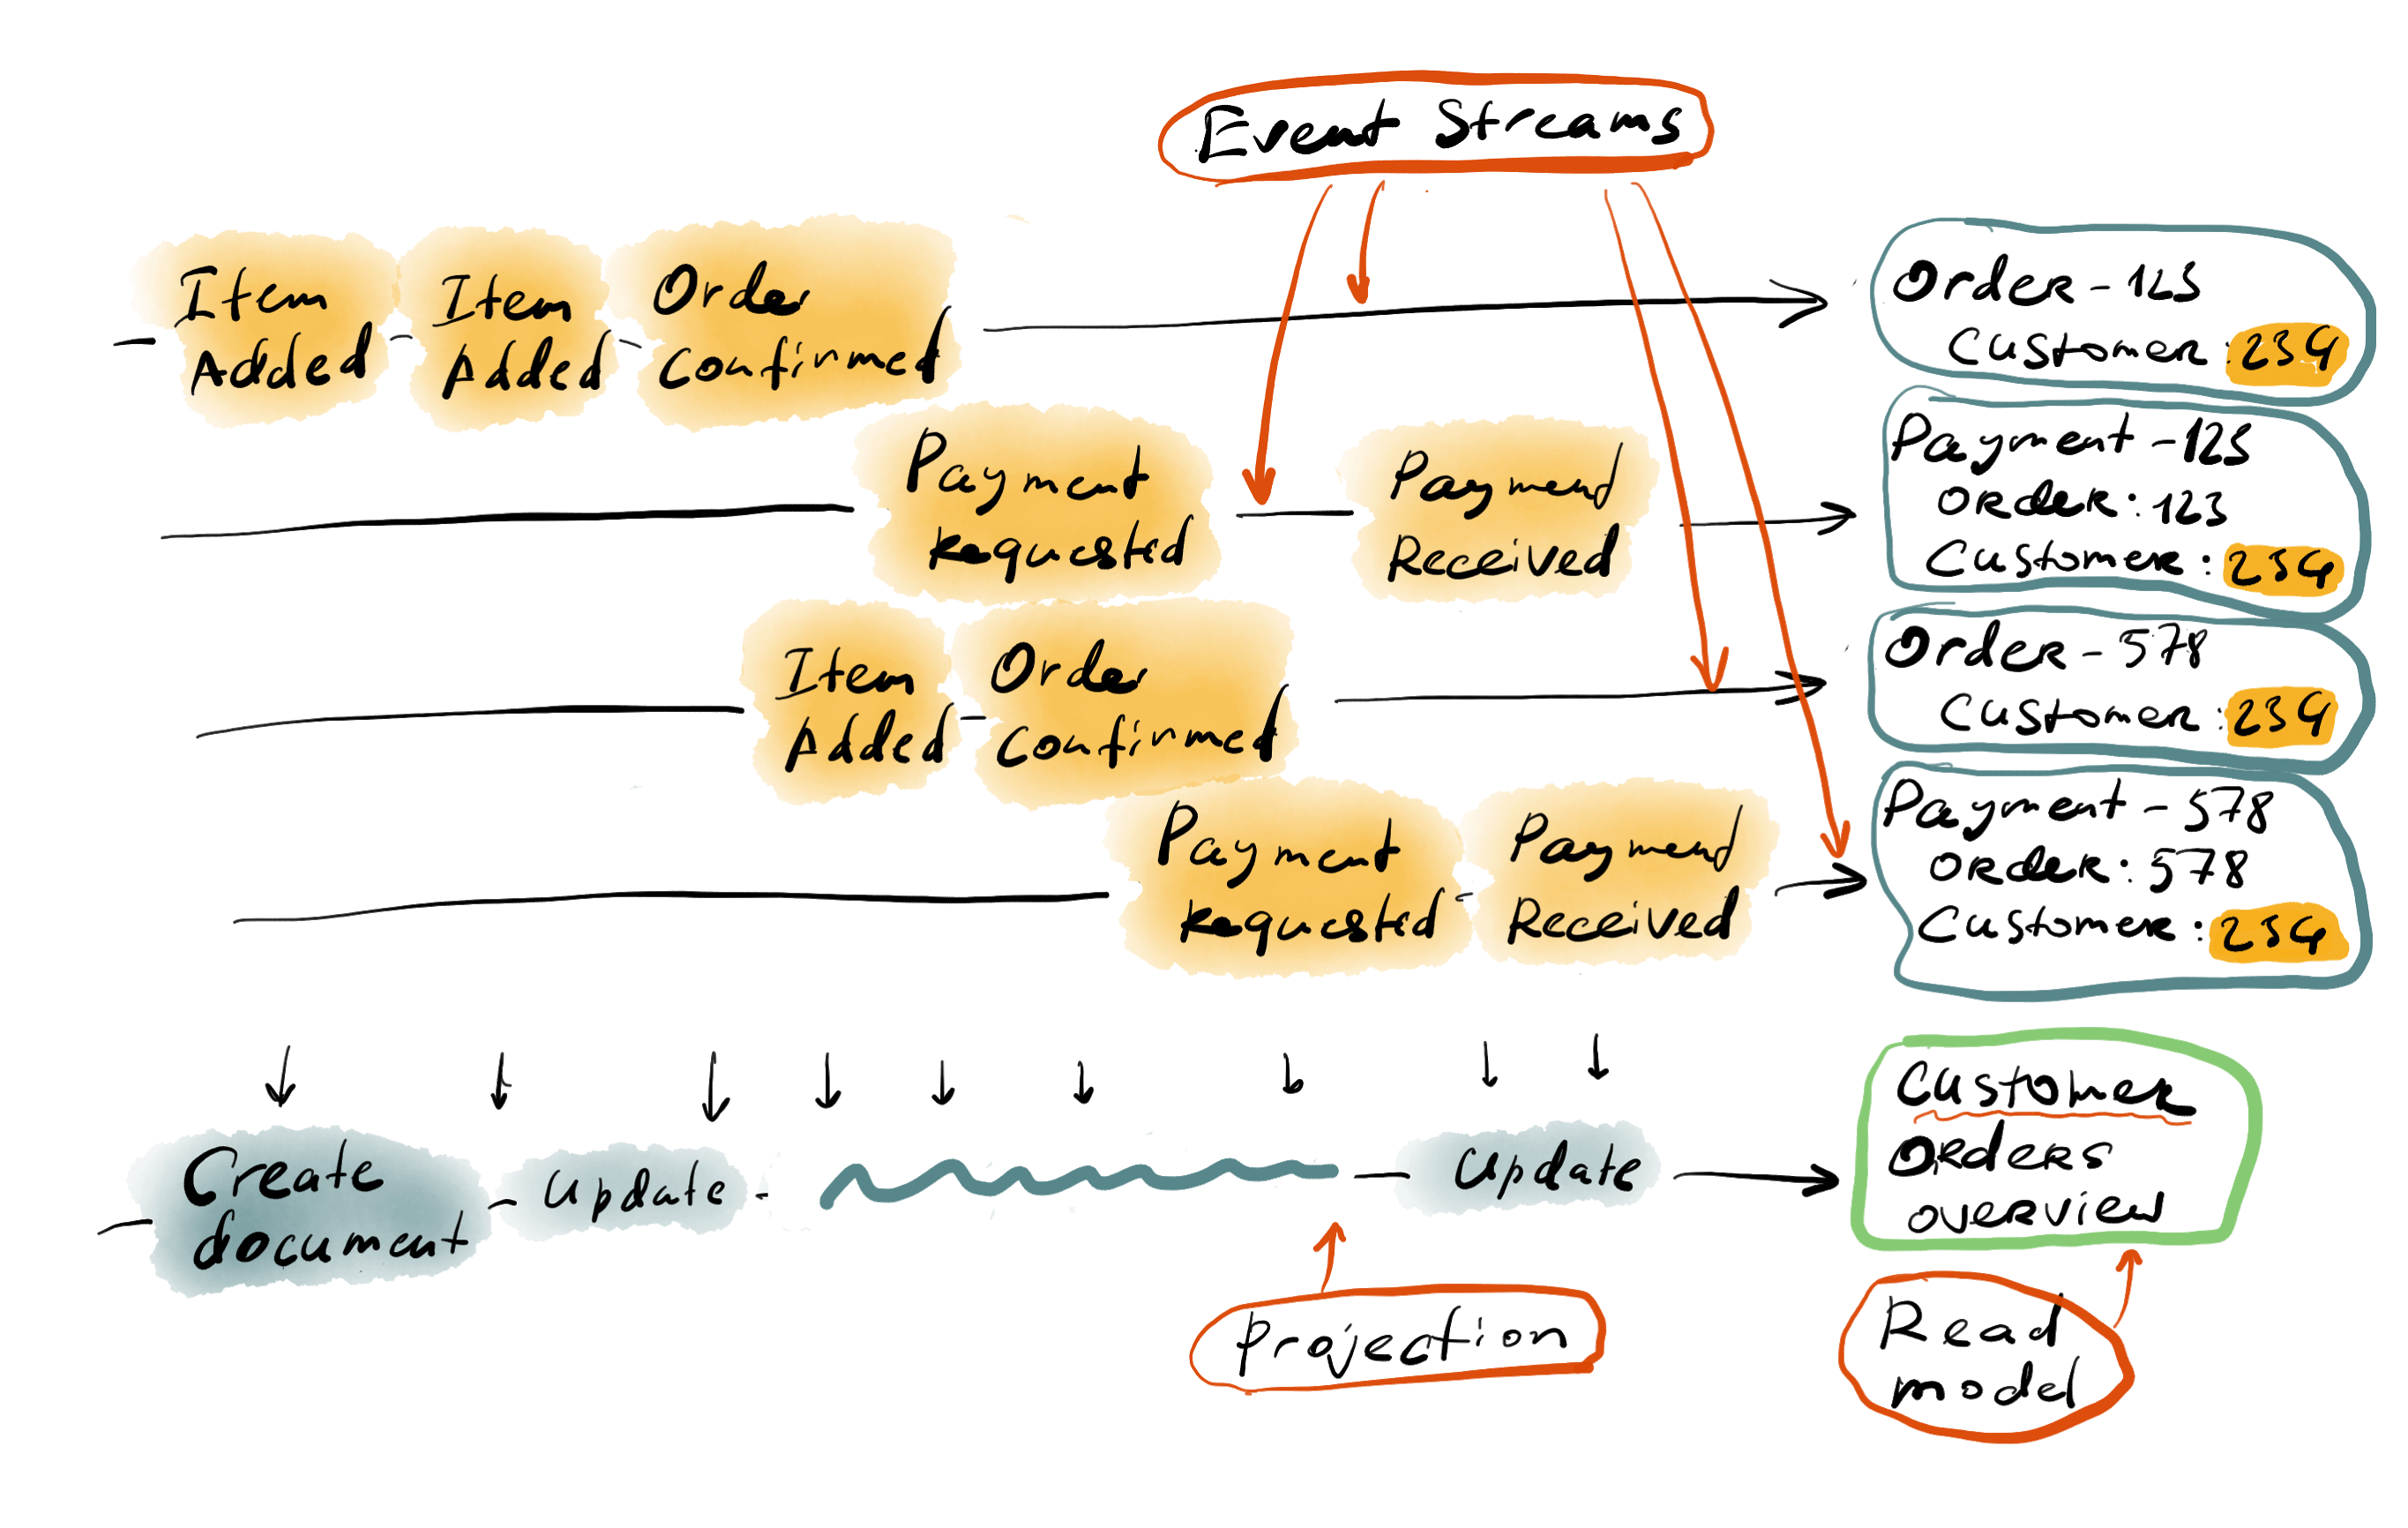 Event Streams
Item
Added
Item
Added
Order
Confirmed
Order - 123
Customer: 234
Payment
Requested
Payment
Received
Payment - 123
Order: 123
Customer: 234
Item
Added
Order
Confirmed
Order - 578
Customer: 234
Payment
Requested
Payment
Received
Payment - 578
Order: 578
Customer: 234
Create
document
Update
Update
Customer
Orders
overview
Projection
Read
model